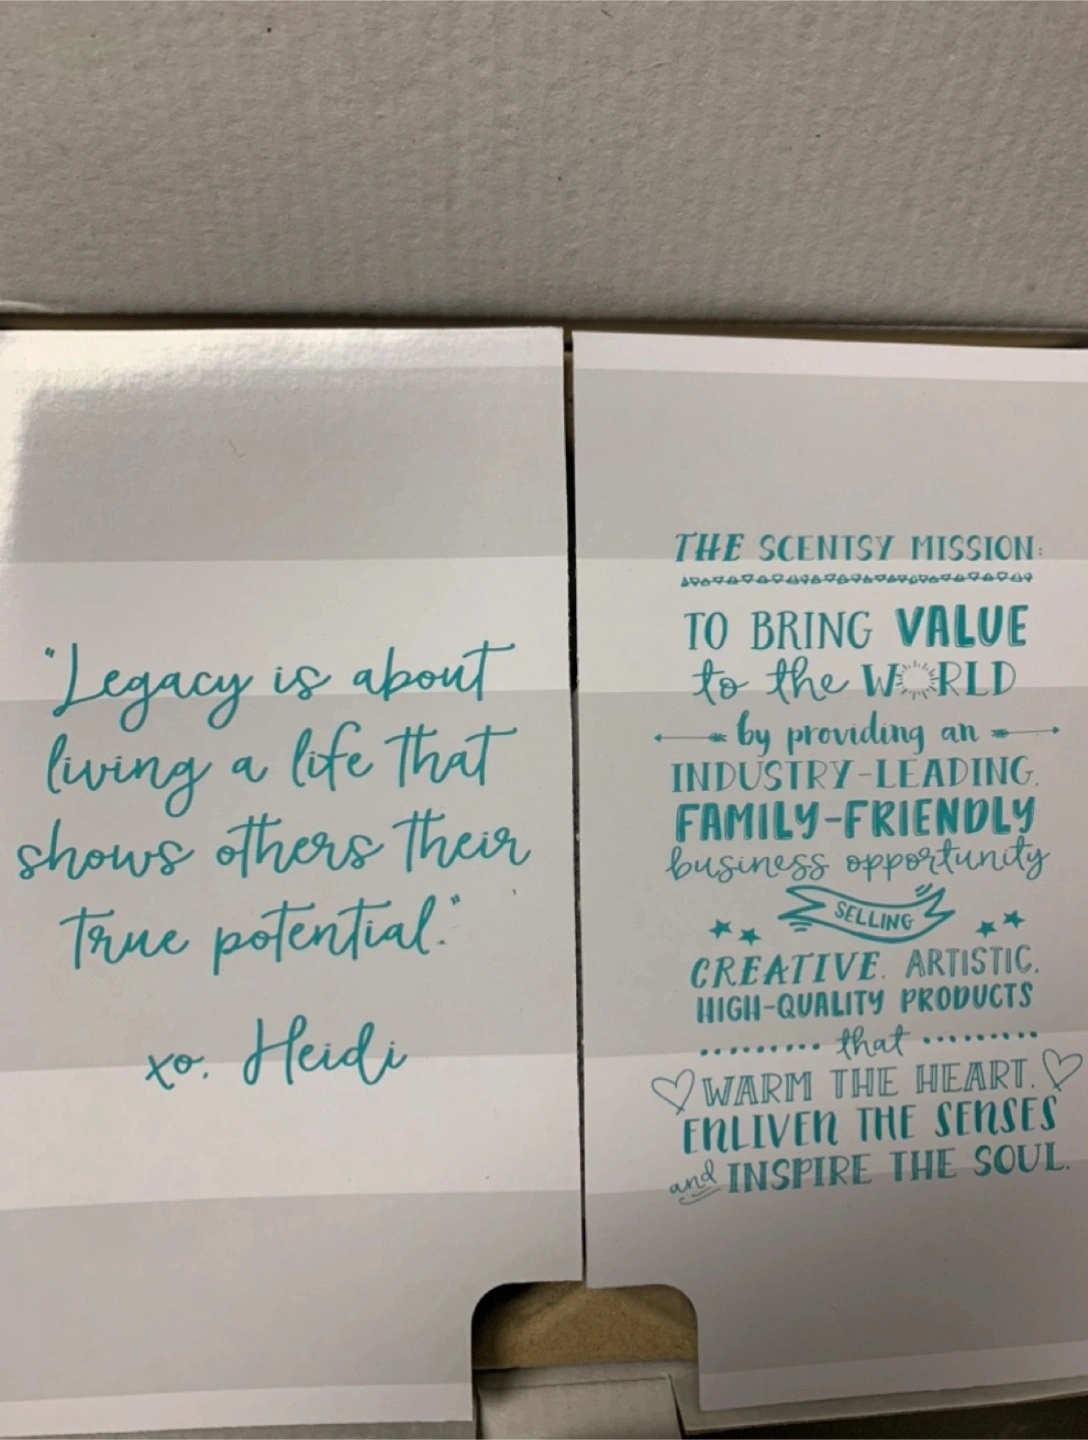 "Legacy is about
living a life that
shows others their
true potential."
xo, Heidi
THE SCENTSY MISSION:
TO BRING VALUE
to the WORLD
by providing an
INDUSTRY-LEADING,
FAMILY-FRIENDLY
business opportunity
SELLING
CREATIVE, ARTISTIC,
HIGH-QUALITY PRODUCTS
that
WARM THE HEART,
ENLIVEN THE SENSES
and INSPIRE THE SOUL.